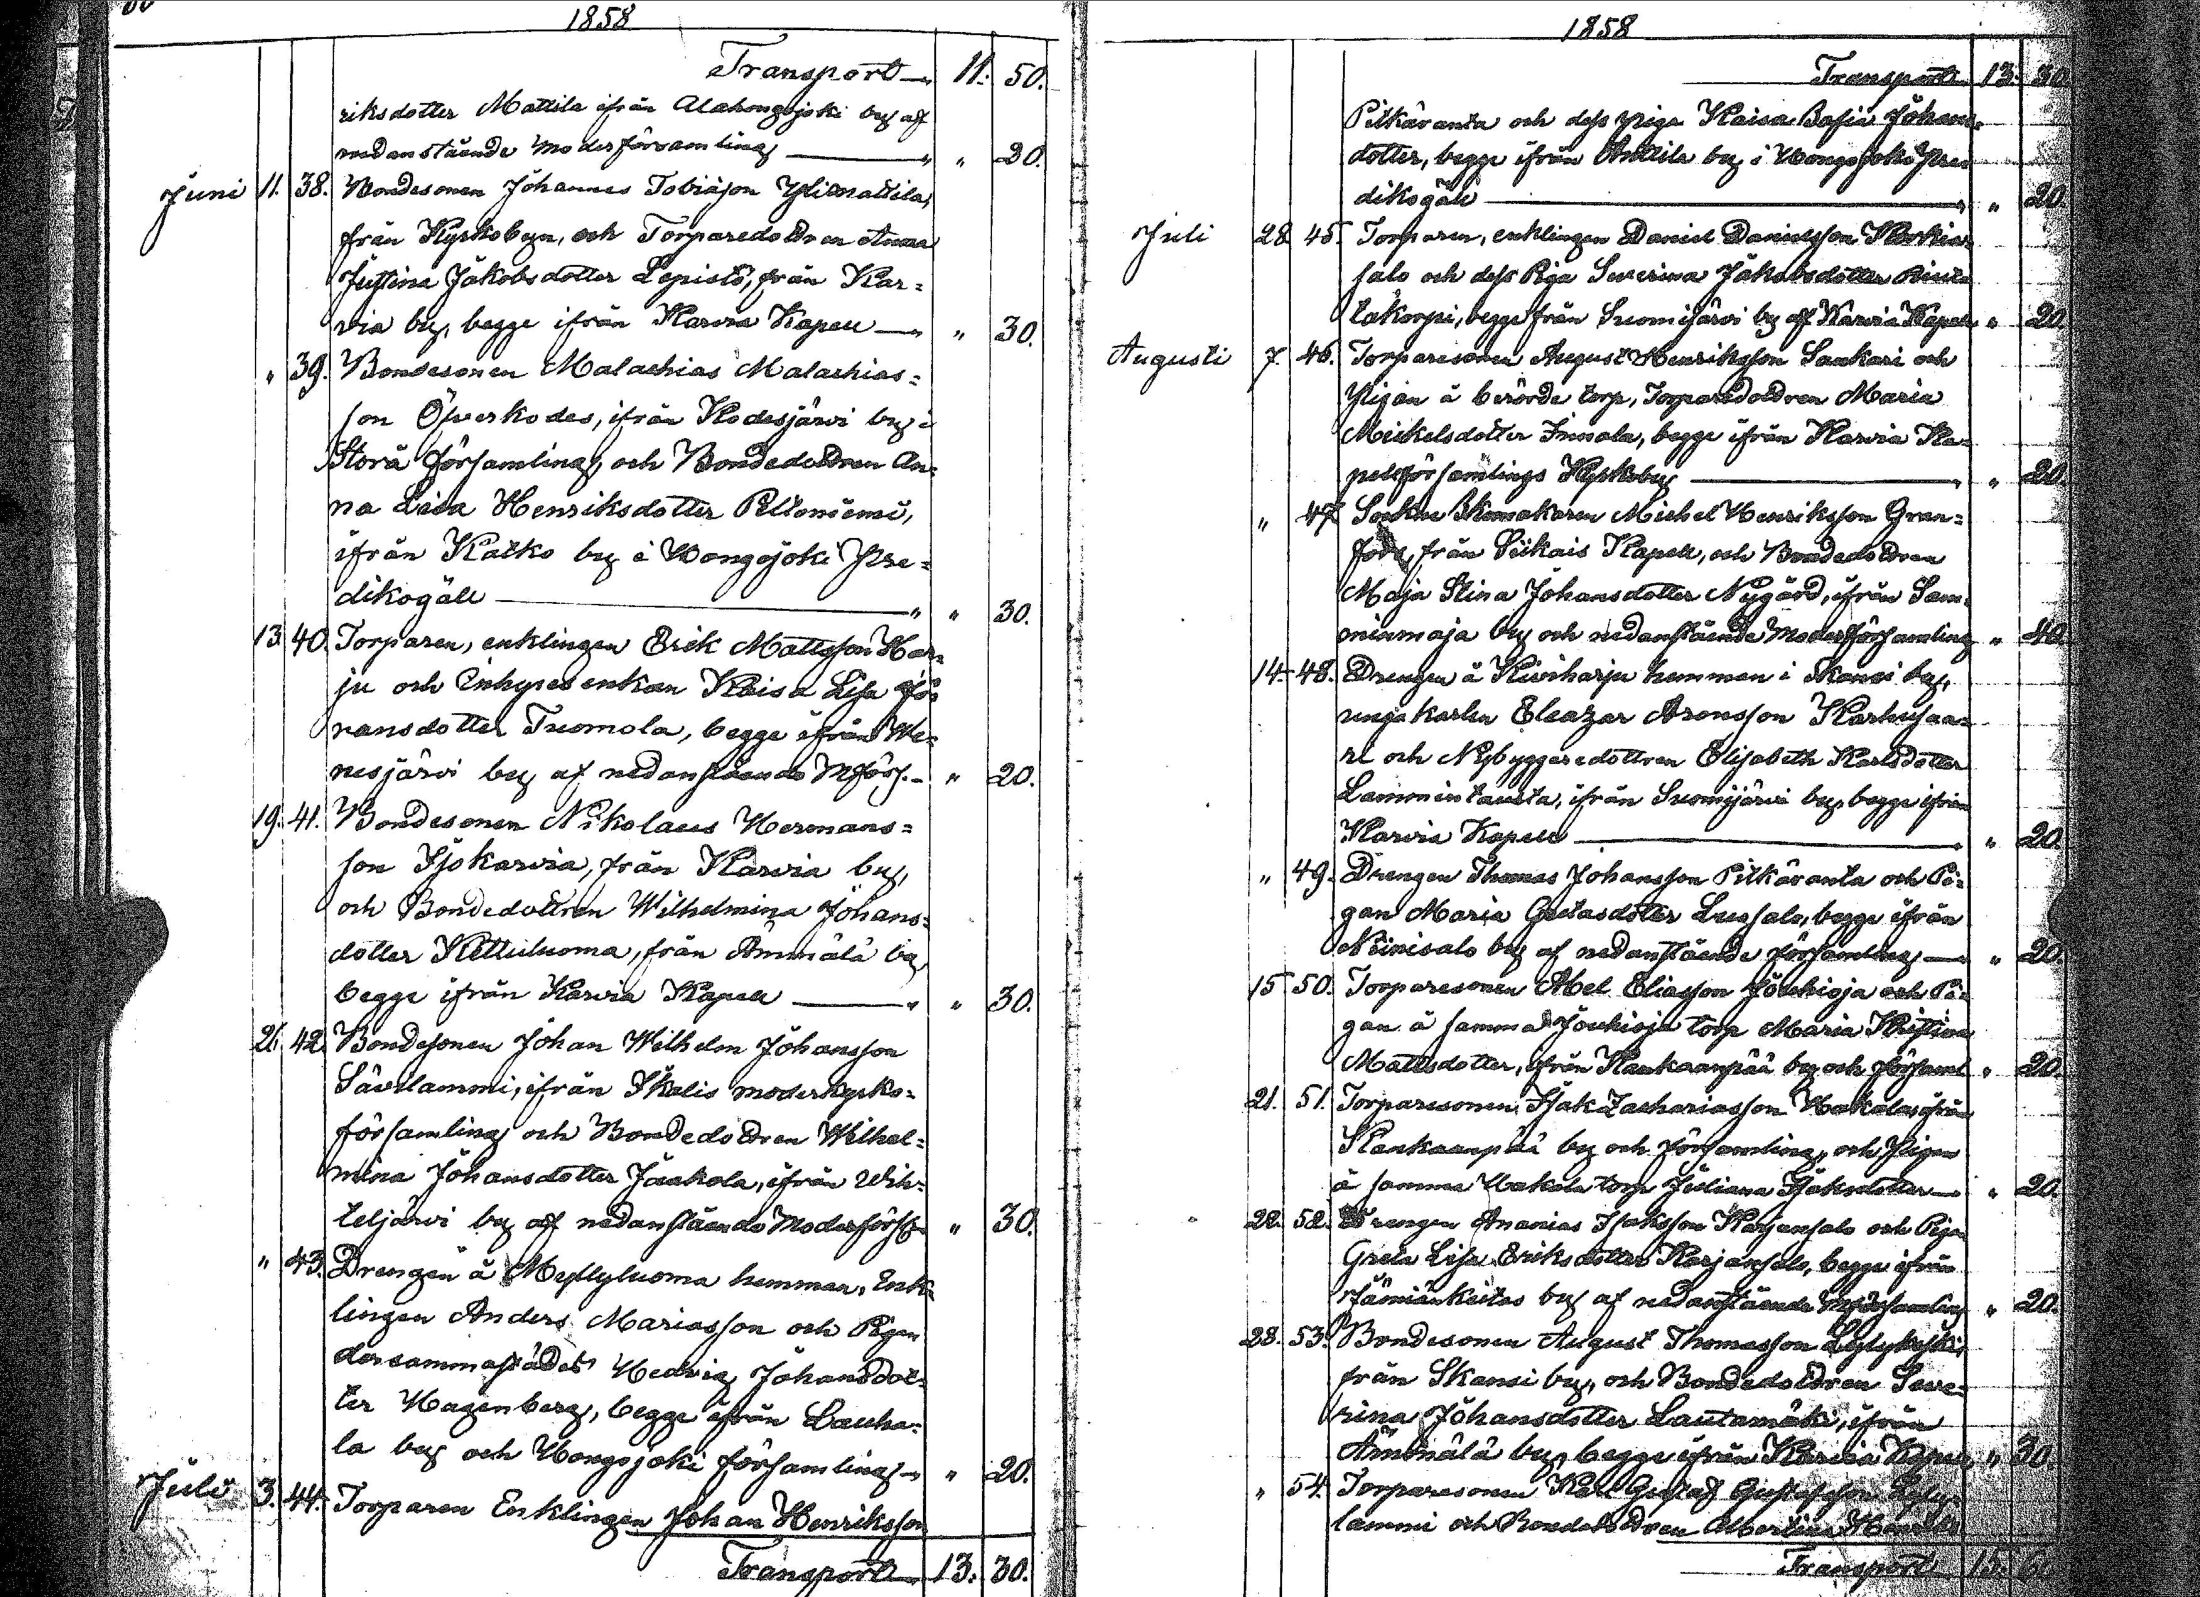 1858
Transport 11. 50.
riksdotter Mattila ifrån Alahongojoki by af
nedanstående Moderförsamling " 20.
Juni 11. 38. Bondesonen Johannes Tobiasson Ylimattila,
från Kyrkobyn, och Torparedottren Anna
Justina Jakobsdotter Lepistö, från Kar=
via by, begge ifrån Karvia Kapell " 30.
" 39. Bondesonen Malachias Malachias=
son Öfverkodes, ifrån Kodesjärvi by i
Storå församling, och Bondedottren An=
na Lisa Henriksdotter Peltoniemi,
ifrån Katko by i Hongojoki Pre=
dikogäll " 30.
13. 40. Torparen, enklingen Erik Mattsson Har=
ju och Inhyses enkan Kaisa Lisa Jö=
ransdotter Tuomola, begge ifrån We=
nesjärvi by af nedanstående Mförs. " 20.
19. 41. Bondesonen Nikolaus Hermans=
son Isokarvia, från Karvia by,
och Bondedottren Wilhelmina Johans=
dotter Kettuluoma, från Ämmälä by,
begge ifrån Karvia Kapell " 30.
26. 42. Bondesonen Johan Wilhelm Johansson
Sävilammi, ifrån Ikalis moderkyrko=
församling och Bondedottren Wilhel=
mina Johansdotter Jaakola, ifrån Wih=
teljärvi by af nedanstående Moderförs. " 30.
" 43. Drengen å Myllyluoma hemman, Enk=
lingen Anders Mariasson och Pigan
dersammastädes Hedvig Johansdot=
ter Hagenberg, begge ifrån Lauha=
la by och Hongojoki församling " 20.
Juli 3. 44. Torparen Enklingen Johan Henriksson
Transport 13. 30.
1858
Transport 13. 30.
Pitkäranta och dess piga Kaisa Johans=
dotter, begge ifrån Anttila by i Hongojoki Pre=
dikogäll " 20.
Juli 28. 45. Torparen, enklingen Daniel Danielsson
salo och dess Piga Severina Jakobsdotter
takorpi, begge från Suomijärvi by af Karvia Kapell " 20.
Augusti 7. 46. Torparesonen August Henriksson Sankari och
Pigan å berörde torp, Torparedottren Maria
Mickelsdotter, begge ifrån Karvia Ka=
pellförsamlings Kyrkoby " 20.
" 47. Sockne Skomakaren Michel Henriksson Gran=
fors, från Siikais Kapell, och Bondedottren
Maja Stina Johansdotter Nygård, ifrån Sam=
minmaja by och nedanstående Moderförsamling " 40.
14. 48. Drengen å Kiviharju hemman i Skansi by,
unga karlen Eleazar Aronsson Karhusaa=
ri och Nybyggaredottren Elisabeth Karlsdotter
Lammintausta, ifrån Suomijärvi by, begge ifrån
Karvia Kapell " 20.
" 49. Drengen Thomas Johansson Pitkäranta och Pi=
gan Maria Gretasdotter Luosalo, begge ifrån
Niinisalo by af nedanstående församling " 20.
15. 50. Torparesonen Abel Eliasson Jouhioja och Pi=
gan å samma Jouhioja torp Maria Kristina
Mattsdotter, ifrån Kankaanpää by och församl " 20.
21. 51. Torparesonen Isak Zachariasson Hakala, ifrån
Kankaanpää by och församling, och Pigan
å samma Hakala torp Juliana Isaksdotter " 20.
22. 52. Drengen Ananias Isaksson Karjansalo och Pigan
Greta Lisa Eriksdotter Karjansalo, begge ifrån
Jämiänkeitas by af nedanstående Mförsamling " 20.
28. 53. Bondesonen August Thomasson Lylykoski,
från Skansi by, och Bondedottren Seve=
rina Johansdotter Lautamäki, ifrån
Ämmälä by, begge ifrån Karvia Kapell " 30.
" 54. Torparesonen Karl Gustaf Gustafsson Lyly=
lammi och Bondedottren Albertina Henriks
Transport 15.